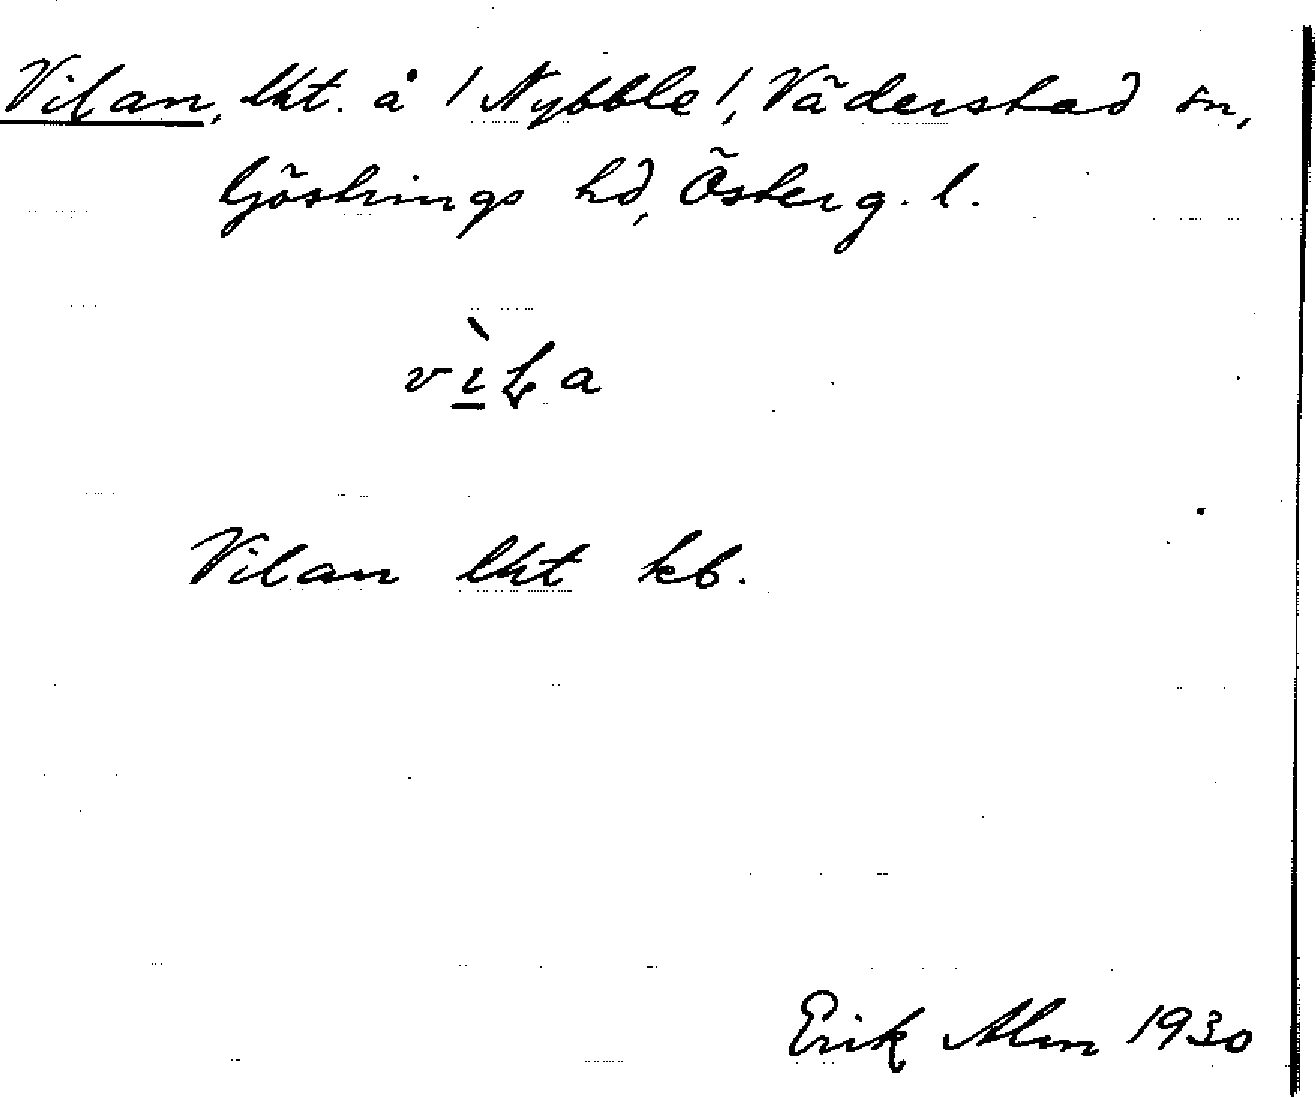 Vilan, lht. å / Nybble /, Väderstad sn,
Göstrings hd, Österg. l.
Vilan lht kb.
Erik Alm 1930